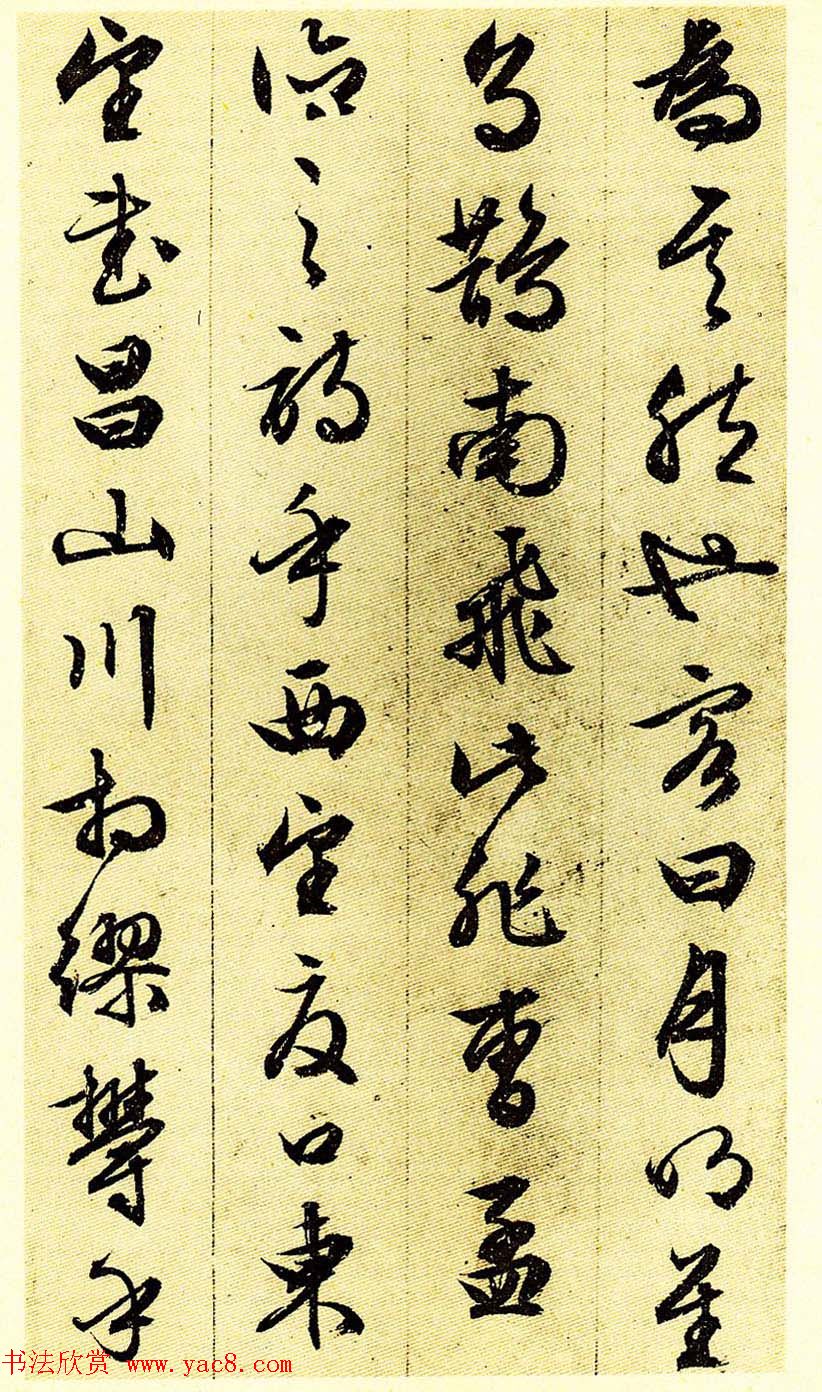 為其然也客曰月明星
烏鵲南飛此非曹孟
德之詩乎西望夏口東
望武昌山川相繆鬱乎
书法欣赏 www.yac8.com